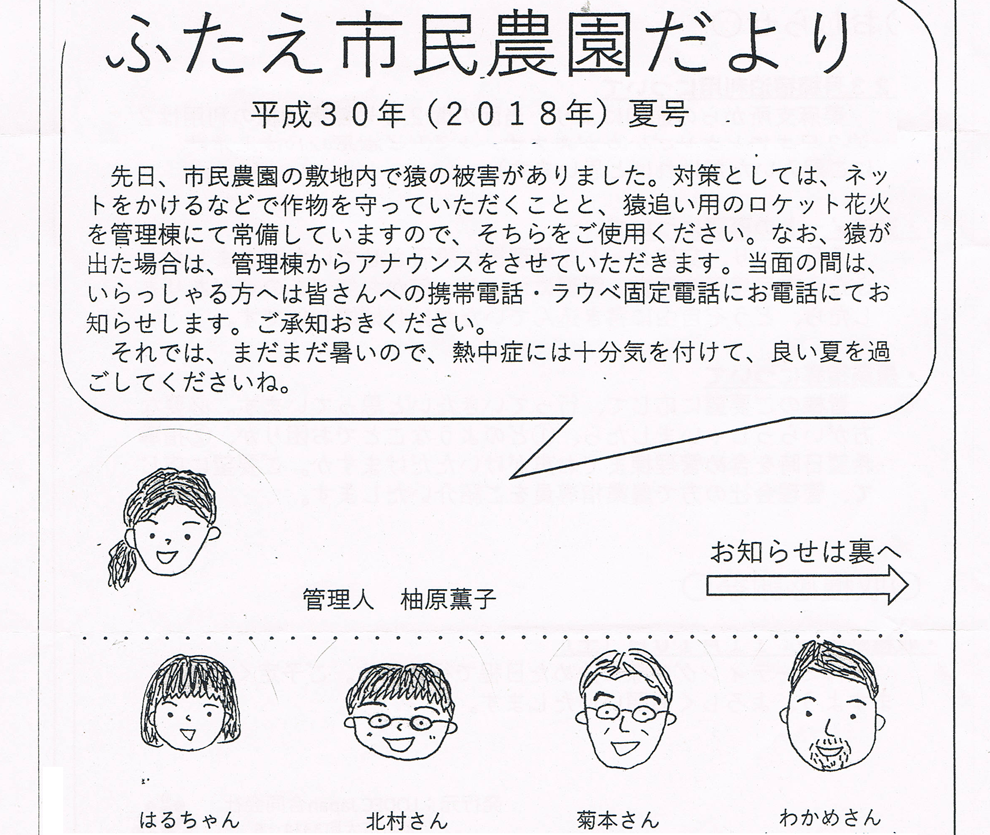 ふたえ市民農園だより
平成３０年（２０１８年）夏号
先日、市民農園の敷地内で猿の被害がありました。対策としては、ネッ
トをかけるなどで作物を守っていただくことと、猿追い用のロケット花火
を管理棟にて常備していますので、そちらをご使用ください。なお、猿が
出た場合は、管理棟からアナウンスをさせていただきます。当面の間は、
いらっしゃる方へは皆さんへの携帯電話・ラウベ固定電話にお電話にてお
知らせします。ご承知おきください。
それでは、まだまだ暑いので、熱中症には十分気を付けて、良い夏を過
ごしてくださいね。
お知らせは裏へ
管理人　柚原薫子
はるちゃん
北村さん
菊本さん
わかめさん